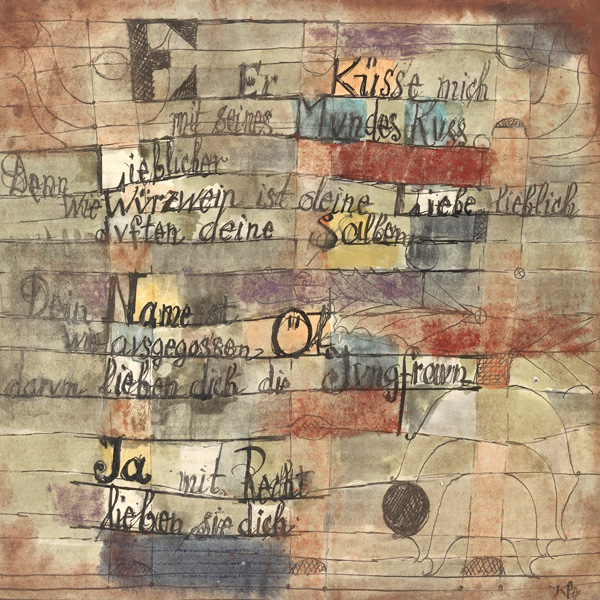 E Er Küsse mich
mit seines Mundes Kuss
Denn Lieblicher
wie Würzwein ist deine Liebe lieblich
duften deine Salben
Dein Name ist
wie ausgegossen Öl
darum lieben dich die Jungfraun
Ja mit Recht
lieben sie dich.